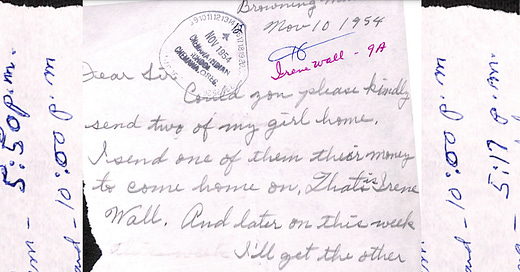 Browning
Nov 10 1954
16
Irene Wall - 9A
NOV 1954
Dear Sir
Could you please kindly
send two of my girl home.
I send one of them their money
to come home on, That is Irene
Wall. And later on this week
I'll get the other
5:50 p.m.
10:00 p.m.
10:00 p.m.
5:11 p.m.